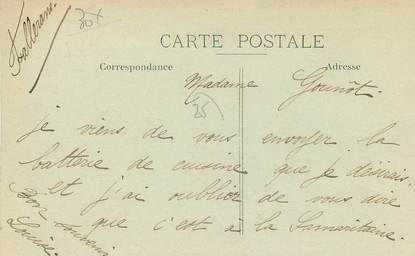 Vallerans.
30x
CARTE POSTALE
Correspondance
Adresse
Madame Gounôt.
25
je viens de vous envoyer la
batterie de cuisine que je désirais
et j'ai oublier de vous dire
que c'est à la Samaritaine.
Bon souvenir
Louise